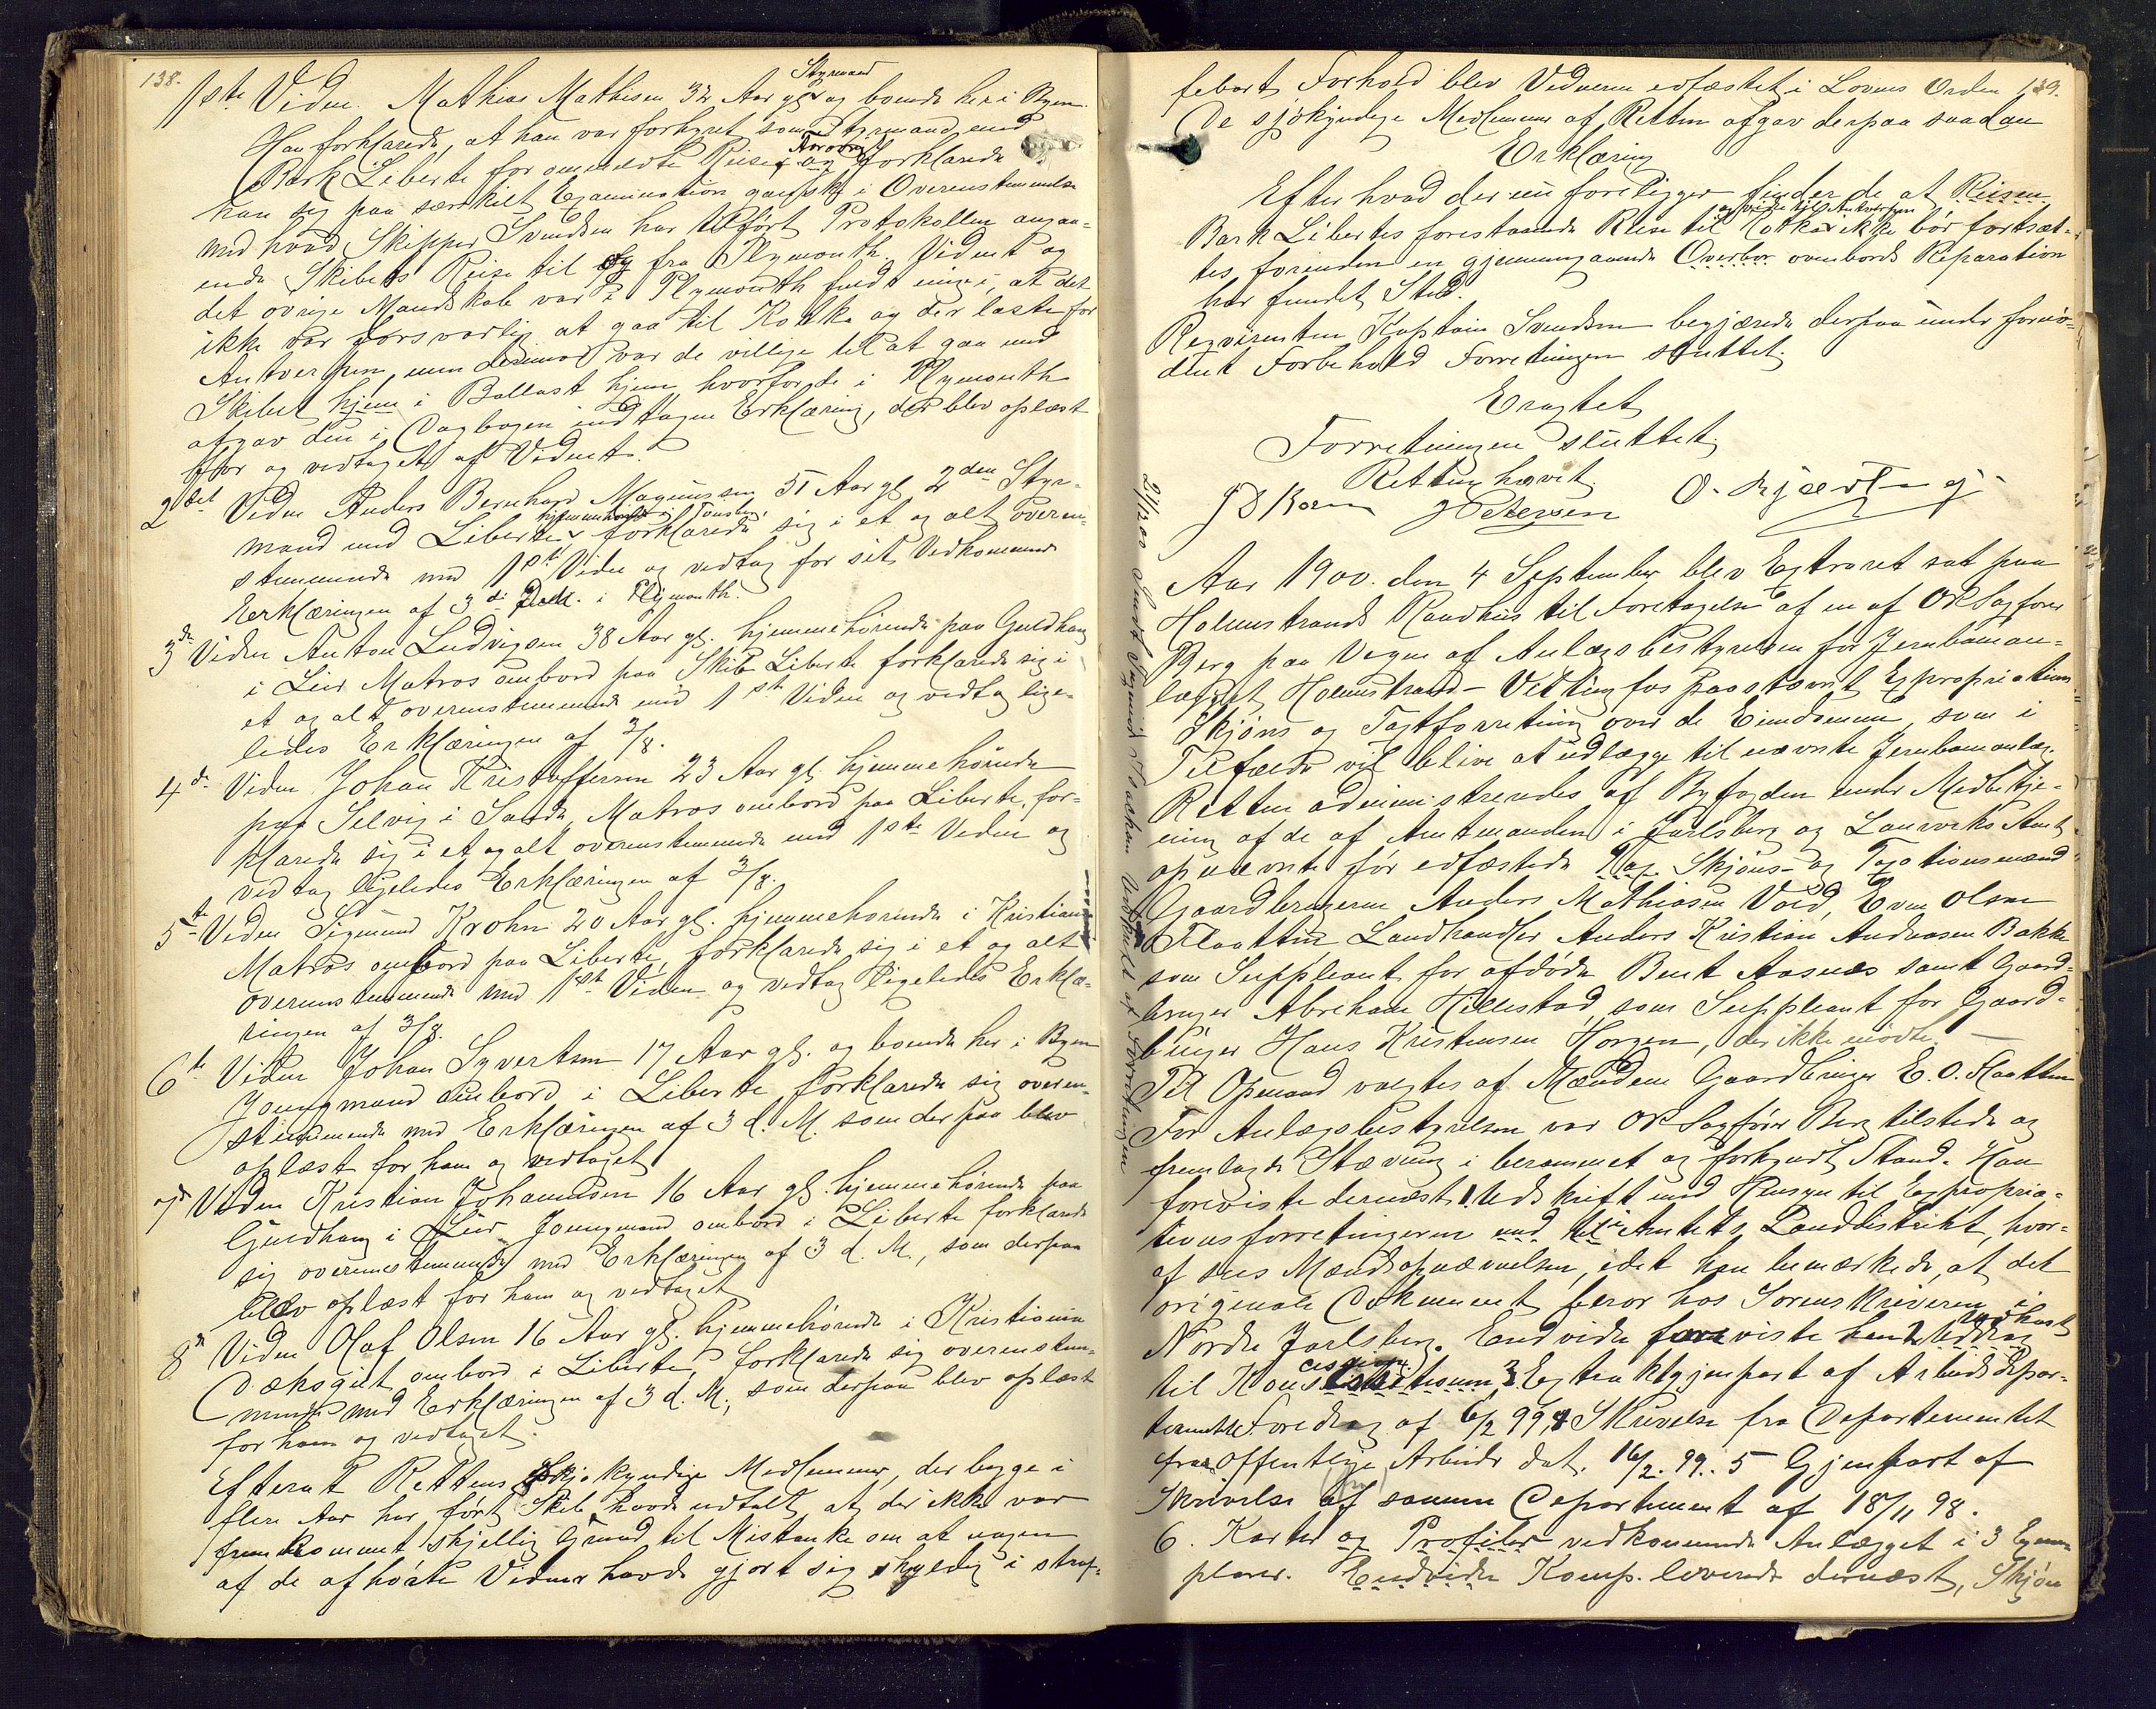 138.
1ste Vidne. Mathias Mathisen 32 Aar gl. Styrmand og boende her i Byen.
Han forklarede, at han var forhyret som Styrmand med
Bark Liberte for omhandlede Reise, og forklarede
han sig paa særskilt Examination ganske i Overensstemmelse
med hvad Skipper Svendsen har tilført Protokollen angaa-
ende Skibets Reise til og fra Plymouth. Vidnet og
det øvrige Mandskab var i Plymouth fuldt enige i, at det
ikke var forsvarlig at gaa til Kotka og der laste for
Antverpen, men derimod var de villige til at gaa med
Skibet hjem i Ballast hjem hvorfor de i Plymouth
afgav den i Dagbogen indtagne Erklæring, der blev oplæst
for og vedtaget af Vidnet.
2det Vidne Anders Bernhard Magnussen 51 Aar gl. 2den Styr-
mand med Liberte, hjemmehørende i Tønsberg, forklarede sig i et og alt overen-
stemmende med 1ste Vidne og vedtog for sit Vedkommende
Erklæringen af 3de ds. i Plymouth.
3de Vidne Anton Ludvigsen 38 Aar gl. hjemmehørende paa Guldhaug
i Lier Matros ombord paa Skib Liberte forklarede sig i
et og alt overensstemmende med 1ste Vidne og vedtog lige-
ledes Erklæringen af 3/8.
4de Vidne Johan Kristoffersen 23 Aar gl. hjemmehørende
paa Selvig i Sande, Matros ombord paa Liberte, for-
klarede sig i et og alt overensstemmende med 1ste Vidne og
vedtog ligeledes Erklæringen af 3/8.
5te Vidne Sigmund Krohn 20 Aar gl. hjemmehørende i Kristiania
Matros ombord paa Liberte, forklarede sig i et og alt
overensstemmende med 1ste Vidne og vedtog ligeledes Erklæ-
ringen af 3/8.
6te Vidne Johan Syvertsen 17 Aar gl. og boende her i Byen
Joungmand ombord i Liberte forklarede sig overen-
stemmende med Erklæringen af 3 d. M. som derpaa blev
oplæst for ham og vedtaget
7de Vidne Kristian Johannesen 16 Aar gl. hjemmehørende paa
Guldhaug i Lier Joungmand ombord i Liberte forklarede
sig overensstemmende med Erklæringen af 3 d. M., som derpaa
blev oplæst for ham og vedtaget
8de Vidne Olaf Olsen 16 Aar gl. hjemmehørende i Kristiania
Dæksgut ombord i Liberte, forklarede sig overensstem-
mende med Erklæringen af 3 d. M., som derpaa blev oplæst
for ham og vedtaget.
Efterat Rettens sjøkyndige Medlemmer, der begge i
flere Aar har ført Skib havde udtalt, at der ikke var
fremkommet skjellig Grund til Mistanke om at nogen
af de afhørte Vidner havde gjort sig skyldig i straf-
139.
febart Forhold blev Vidnerne edfæstet i Lovens Orden
De sjøkyndige Medlemmer af Retten afgav derpaa saadan
Erklæring
Efter hvad der nu foreligger finder de at Reisen
Bark Libertes forestaaende Reise til Kotka og videre til Antverpen ikke bør fortsæt-
tes, forinden en gjennemgaaende Overbor ovenbords Reparation
har fundet Sted.
Rekvirenten Kaptein Svendsen begjærede derpaa under fornø-
dent Forbehold Forretningen sluttet.
Eragtet
Forretningen sluttet
Retten hævet.
J D Koren H Petersen O. Kjær
21/12 00
Aar 1900. den 4 September blev Extraret sat paa
Holmestrands Raadhus til Foretagelse af en af ORSagfører
Berg paa Vegne af Anlægsbestyrelsen for Jernbanean-
lægget Holmestrand-Vittingfos paastævnt Expropriations
Skjøns og Taxtforretning over de Eiendomme, som i
Tilfælde vil blive at udlægge til nævnte Jernbaneanlæg.
Retten administreredes af Byfogden under Medbetje-
ning af de af Amtmanden i Jarlsberg og Laurviks Amt
opnævnte før edfæstede Tax Skjøns- og Taxationsmænd
Gaardbrugerne Anders Mathiasen Vold, Even Olsen
Flaatten Landhandler Anders Kristian Andreasen Bakke
som Suppleant for afdøde Bent Aasnæs samt Gaard-
bruger Abraham Hillestad, som Suppleant for Gaard-
bruger Hans Kristensen Horgen, der ikke mødte. —
Til Opmand valgtes af Mændene Gaardbruger E. O. Flaatten
For Anlægsbestyrelsen var ORSagfører Berg tilstede og
fremlagde Stævning i berammet og forkyndt Stand. Han
foreviste dernæst 1. Udskrift med Hensyn til Expropria-
tionsforretningerne med til i Amtets Landdistrikt, hvor-
af sees Mændsopnævnelsen, idet han bemærkede, at det
originale Dokument beror hos Sorenskriveren i
Nordre Jarlsberg. Endvidere foreviste han 2 Uddrag
til Koncessionen, 3 Extraktgjenpart af Arbeidsdepar-
tementets Foredrag af 6/2 99, 4 Skrivelse fra Departementet
for offentlige Arbeider dat. 16/2. 99. 5 Gjenpart af
Skrivelse af samme Departement af 18/11 98.
6. Karter og Profiler vedkommende Anlægget i 3 Exem-
plarer. Endvidere Komp. leverede dernæst, Skjøn